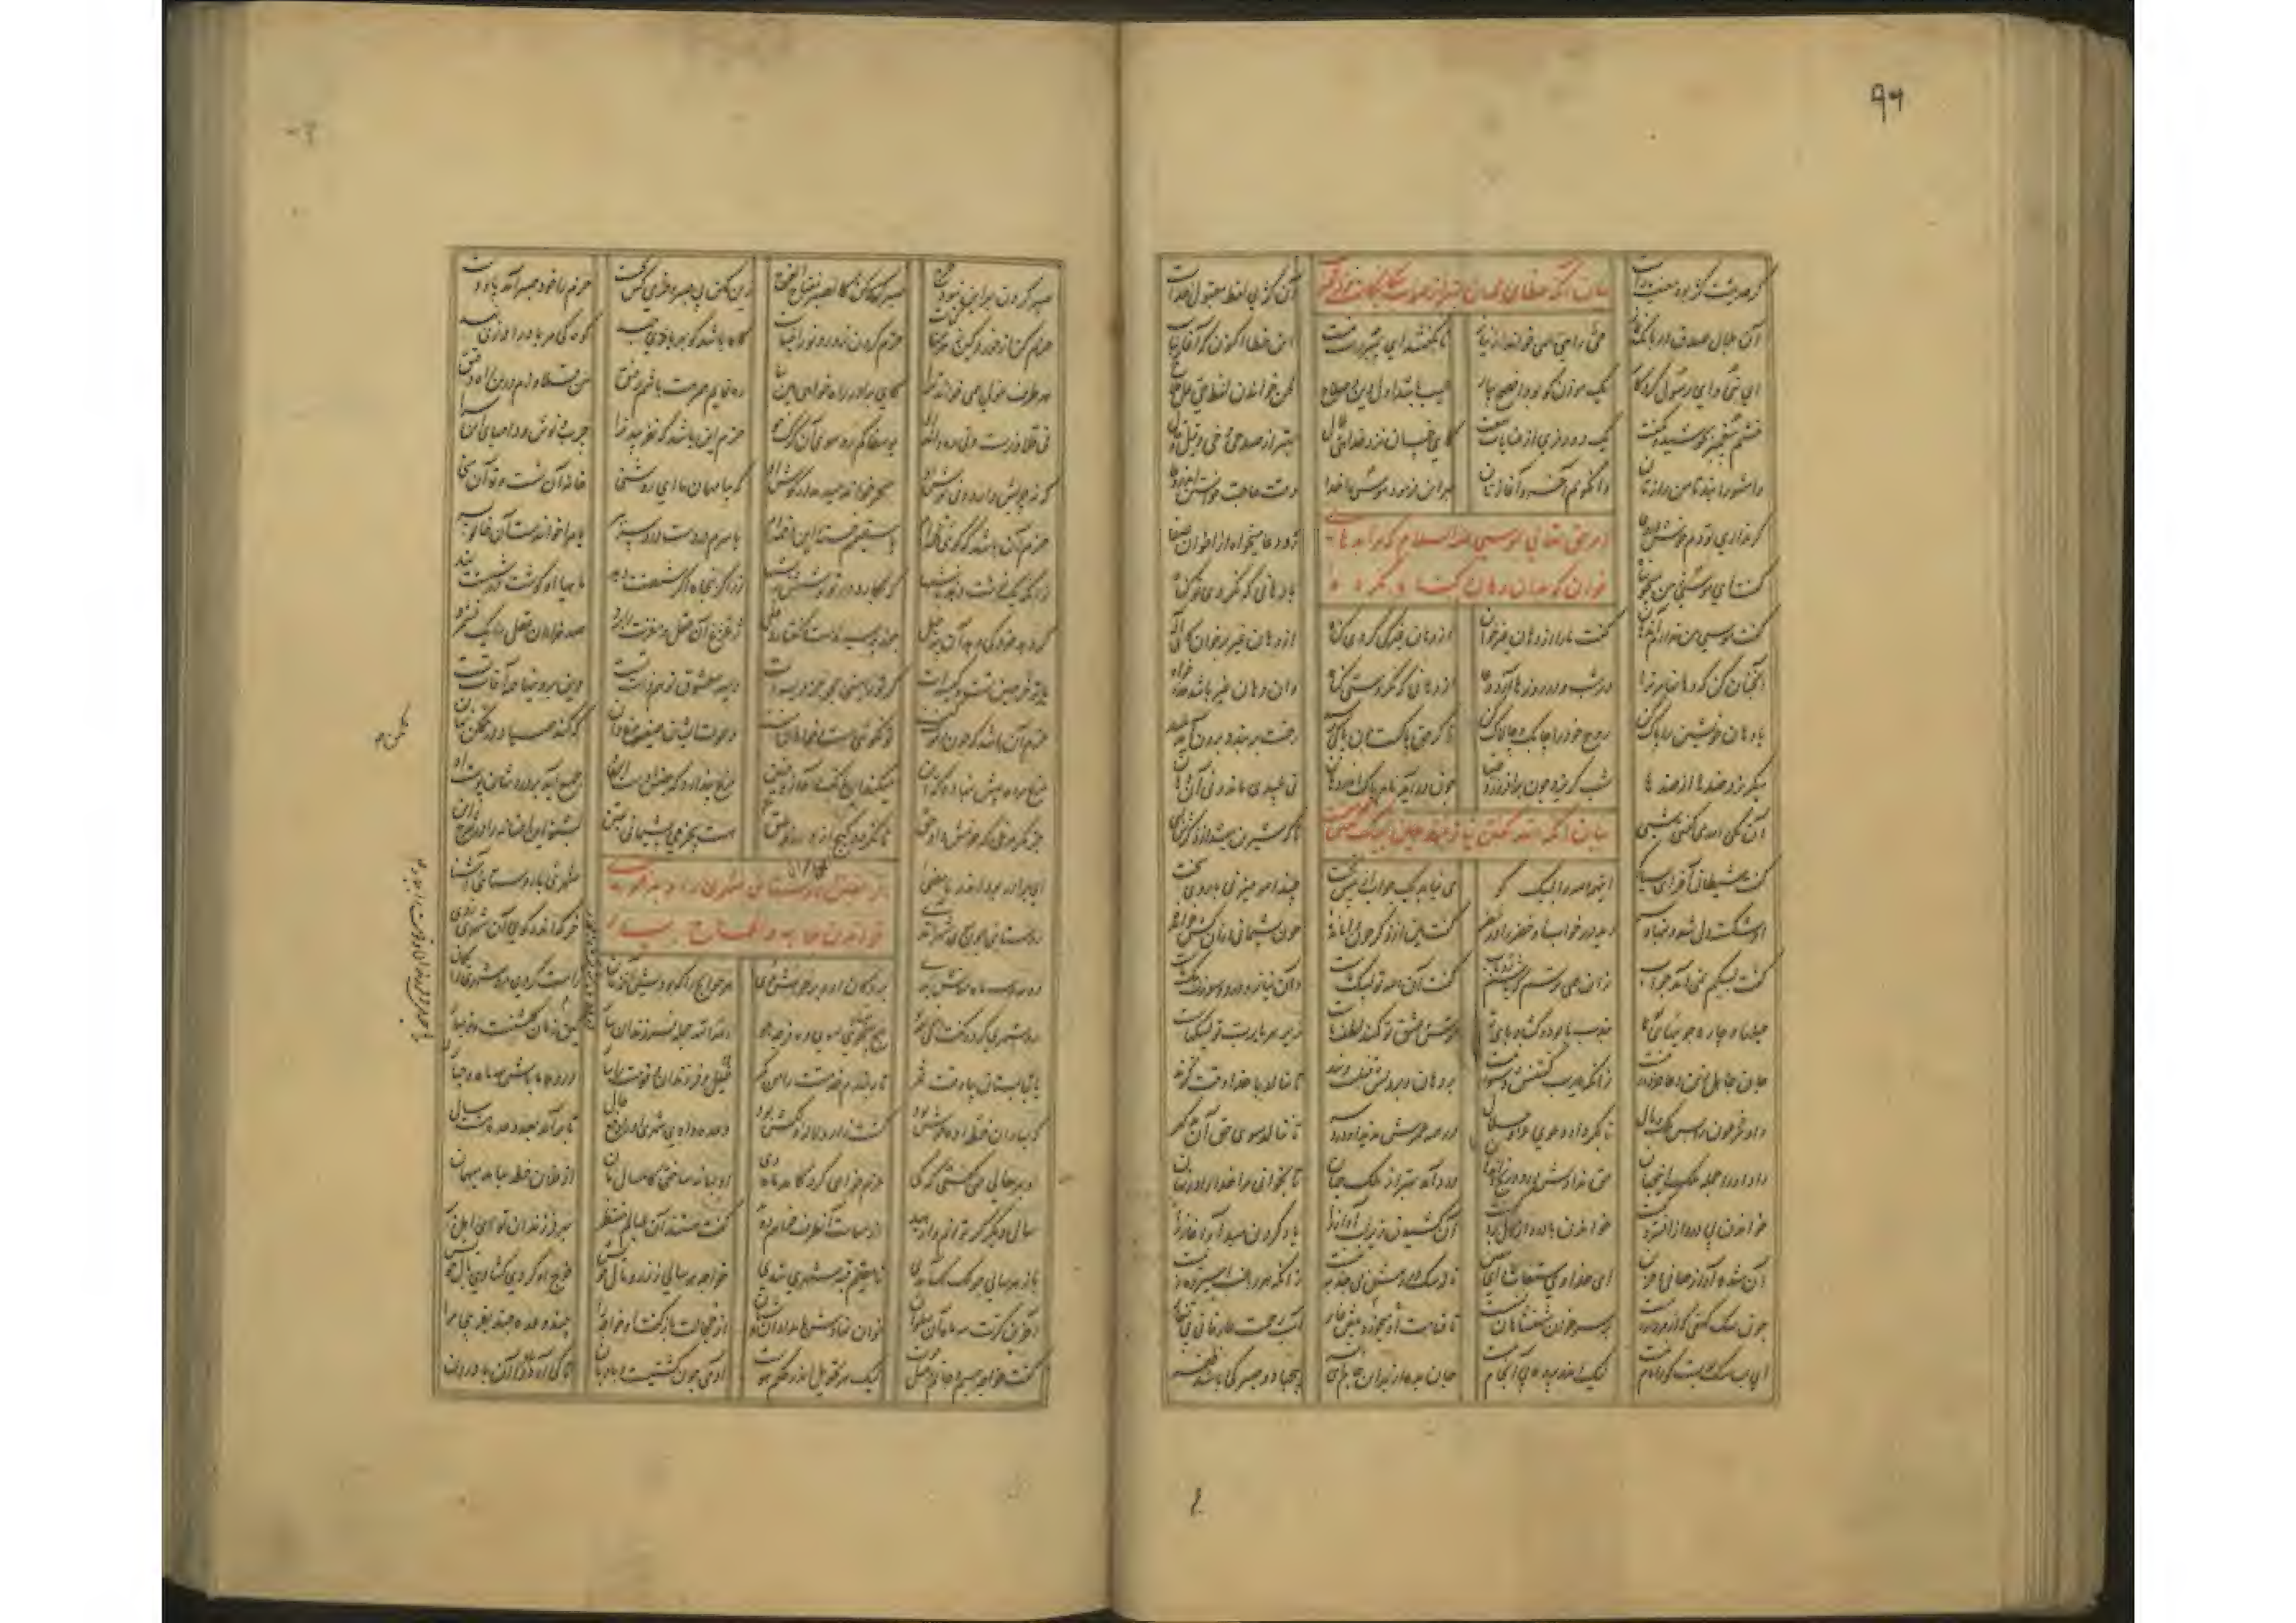 ۹۲
گر حدیثت کژ بود معنیت راست آن کژی لفظ مقبول خداست
بیان آنکه خطای محبان بهتر از صواب بیگانگان
آن بلال صدق در بانگ نماز حی را هی همی خواند از نیاز تا بگفتند ای پیمبر نیست راست این خطا اکنون که آغاز بناست
ای نبی و ای رسول کردگار یک موذن کو بود افصح بیار عیب باشد اول دین و صلاح لحن خواندن لفظ حی علی
خشم پیغمبر بجوشید و بگفت یک دو رمزی از عنایات نهفت کای خسان نزد خدا هی بلال بهتر از صد حی و خی و قیل و قال
وا مشورانید تا من رازتان وا نگویم آخر و آغازتان بهر این فرمود با موسی خدا وقت حاجت خواستن اندر دعا
گر نداری تو دم خوش در دعا رو دعا میخواه ز اخوان صفا
امر حق تعالی بموسی علیه السلام که مرا بدهانی
خوان که بدان دهان گناه نکرده
گفت ای موسی ز من میجو پناه با دهانی که نکردی تو گناه
گفت موسی من ندارم آن دهان گفت ما را از دهان غیر خوان از دهان غیر کی کردی گناه از دهان غیر بر خوان کای اله
آنچنان کن که دهانها مر ترا در شب و در روزها آرد دعا از دهانی که نکردستی گناه وان دهان غیر باشد عذر خواه
یا دهان خویشتن را پاک کن روح خود را چابک و چالاک کن ذکر حق پاکست چون پاکی رسید رخت بربندد برون آید پلید
میگریزد ضدها از ضدها شب گریزد چون برافروزد ضیا چون درآید نام پاک اندر دهان نی پلیدی ماند و نی آن دهان
آن یکی الله می گفتی شبی تا که شیرین میشد از ذکرش لبی
بیان آنکه الله گفتن نیازمند عین لبیک گفتن
گفت شیطان آخر ای بسیارگو این همه الله را لبیک کو می نیاید یک جواب از پیش تخت چند الله میزنی با روی سخت
او شکسته دل شد و بنهاد سر دید در خواب او خضر را در خضر گفت هین از ذکر چون وا مانده چون پشیمانی از آن کش خوانده
گفت لبیکم نمی آید جواب زان همی ترسم که باشم رد باب گفت آن الله تو لبیک ماست وان نیاز و درد و سوزت پیک ماست
حیلها و چاره جوئیهای تو جذب ما بود و گشاد این پای تو ترس و عشق تو کمند لطف ماست زیر هر یارب تو لبیکهاست
جان جاهل زین دعا جز دور نیست زانکه یارب گفتنش دستور نیست بر دهان و بر دلش قفلست و بند تا ننالد با خدا وقت گزند
داد مر فرعون را صد ملک و مال تا بکرد او دعوی عز و جلال در همه عمرش ندید او درد سر تا ننالد سوی حق آن بدگهر
داد او را جمله ملک این جهان حق ندادش درد و رنج و اندهان درد آمد بهتر از ملک جهان تا بخوانی مر خدا را در نهان
خواندن بی درد از افسردگیست خواندن با درد از دل بردگیست آن کشیدن زیر لب آواز را یاد کردن مبدا و آغاز را
آن شده آواز صافی و حزین ای خدا وی مستغاث و ای معین ناله سگ در رهش بی جذبه نیست زانکه هر راغب اسیر ره زنیست
چون سگ کهفی که از مردار رست بر سر خوان شهنشاهان نشست تا قیامت میخورد او پیش غار آب رحمت عارفانه بی تغار
ای بسا سگ پوست کو را نام نیست لیک اندر پرده بی آن جام نیست جان بده از بهر این جام ای پسر بی جهاد و صبر کی باشد ظفر
صبر کردن بهر این نبود حرج صبر کن کالصبر مفتاح الفرج زین کمین بی صبر و حزمی کس نجست حزم را خود صبر آمد پا و دست
حزم کن از خورد کین زهرین گیاست حزم کردن زور و نور انبیاست کاه باشد کو بهر بادی جهد کوه کی مر باد را وزنی نهد
هر طرف غولی همی خواند ترا کای برادر راه خواهی هین بیا ره نمایم همرهت باشم رفیق من قلاوزم درین راه دقیق
نی قلاوزست و نی ره داند او یوسفا کم رو سوی آن گرگ خو حزم این باشد که نفریبد ترا چرب و نوش و دامهای این سرا
که نه چربش دارد و نی نوش او سحر خواند میدمد در گوش او که بیا مهمان ما ای روشنی خانه آن تست و تو آن منی
حزم آن باشد که گوئی تخمه ام یا سقیمم خسته این دخمه ام یا سرم دردست درد سر ببر یا مرا خواندست آن خالو پسر
زانکه یک نوشت دهد با نیشها که بکارد در تو نوشش ریشها زر اگر پنجاه اگر شصتت دهد ماهیا او گوشت در شستت دهد
گر دهد خود کی دهد آن پر حیل جوز پوسیدست گفتار دغل ژغژغ آن عقل و مغزت را برد صد هزاران عقل را یک نشمرد
یار تو خرجین تست و کیسه ات گر تو رامینی مجو جز ویسه ات ویسه و معشوق تو هم ذات تست وین برونیها همه آفات تست
حزم آن باشد که چون دعوت کنند تو نگوئی مست و خواهان منند دعوت ایشان صفیر مرغ دان که کند صیاد در مکمن نهان
مرغ مرده پیش بنهاده که این میکند این بانگ و آواز و حنین مرغ پندارد که جنس اوست او جمع آید بر دردشان پوست او
جز مگر مرغی که حزمش داد حق تا نگردد گیج از آن دانه و ملق هست بی حزمی پشیمانی یقین بشنو این افسانه را در شرح این
ای برادر بود اندر ما مضی شهریی با روستائی آشنا
فریفتن روستائی شهری را و بدعوت
خواندن بلابه و الحاح بسیار
روستائی چون سوی شهر آمدی خرگه اندر کوی آن شهری زدی
دو مه و سه ماه مهمانش بدی بر دکان او و بر خوانش بدی هر حوایج را که بودیش آن زمان راست کردی مرد شهری رایگان
رو بشهری کرد و گفت ای خواجه تو هیچ می نائی سوی ده فرجه جو الله الله جمله فرزندان بیار کین زمان گلشنست و نوبهار
یا بتابستان بیا وقت ثمر تا ببندم خدمتت را من کمر خیل و فرزندان و قومت را بیار در ده ما باش سه ماه و چهار
که بهاران خطه ده خوش بود کشت زار و لاله دلکش بود وعده دادی شهری او را دفع حال تا بر آمد بعد وعده هشت سال
او بهر سالی همی گفتی که کی عزم خواهی کرد کامد ماه دی او بهانه ساختی کامسال مان از فلان خطه بیامد میهمان
سال دیگر گر توانم وارهید از مهمات آنطرف خواهم دوید گفت هستند آن عیالم منتظر بهر فرزندان تو ای اهل بر
باز هر سالی چو لکلک آمدی تا مقیم قبه شهری شدی خواجه هر سالی ز زر و مال خویش خرج او کردی گشادی بال خویش
آخرین کرت سه ماه آن پهلوان خوان نهادش بامدادان و شبان از خجالت باز گفت او خواجه را چند وعده چند بفریبی مرا
گفت خواجه جسم و جانم وصل جوست لیک هر تحویل اندر حکم هوست آدمی چون کشتیست و بادبان تا کی آرد باد را آن بادران